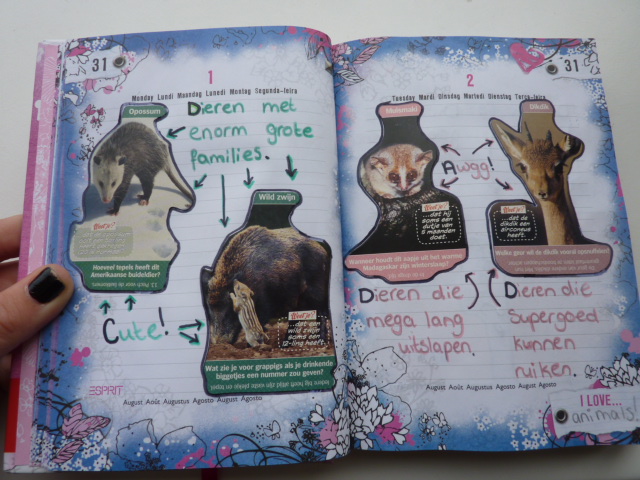 31
1
Monday Lundi Maandag Lunedi Montag Segunda-feira
Opossum
Dieren met
enorm grote
families.
Hoeveel tepels heeft dit
Amerikaanse buideldier?
Wild zwijn
Weetje!
...dat een
wild zwijn
soms een
12-ling heeft.
Wat zie je voor grappigs als je drinkende
biggetjes een nummer zou geven?
Cute!
ESPRIT
August Août Augustus Agosto August Agosto
31
2
Tuesday Mardi Dinsdag Martedi Dienstag Terça-feira
Muismaki
Weetje!
...dat hij
soms een
dutje van
5 maanden
doet.
Wanneer houdt dit aapje uit het warme
Madagaskar zijn winterslaap?
Dikdik
Weetje!
...dat de
dikdik een
zircouneus
heeft.
Awgg!
Dieren die
mega lang
uitslapen.
Dieren die
Supergoed
kunnen
ruiken.
August Août Augustus Agosto August Agosto
I LOVE...
animals!